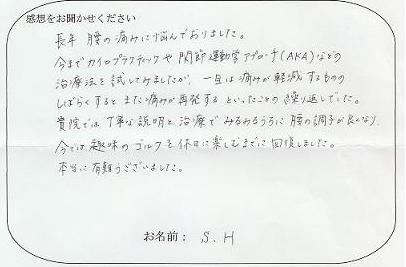 感想をお聞かせください
長年 腰の痛みに悩んでおりました。
今までカイロプラクティックや関節運動学アプローチ(AKA)などの
治療法を試してみましたが、一旦は痛みが軽減するものの
しばらくするとまた痛みが再発するといったことの繰り返しでした。
貴院では丁寧な説明と治療でみるみるうちに腰の調子が良くなり、
今では趣味のゴルフを休日に楽しむまでに回復しました。
本当に有難うございました。
お名前： S. H